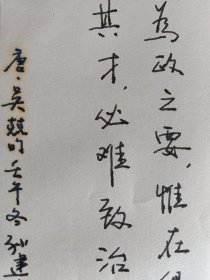 為政之要,惟在
其才,必難致治
唐·吳兢 壬午冬